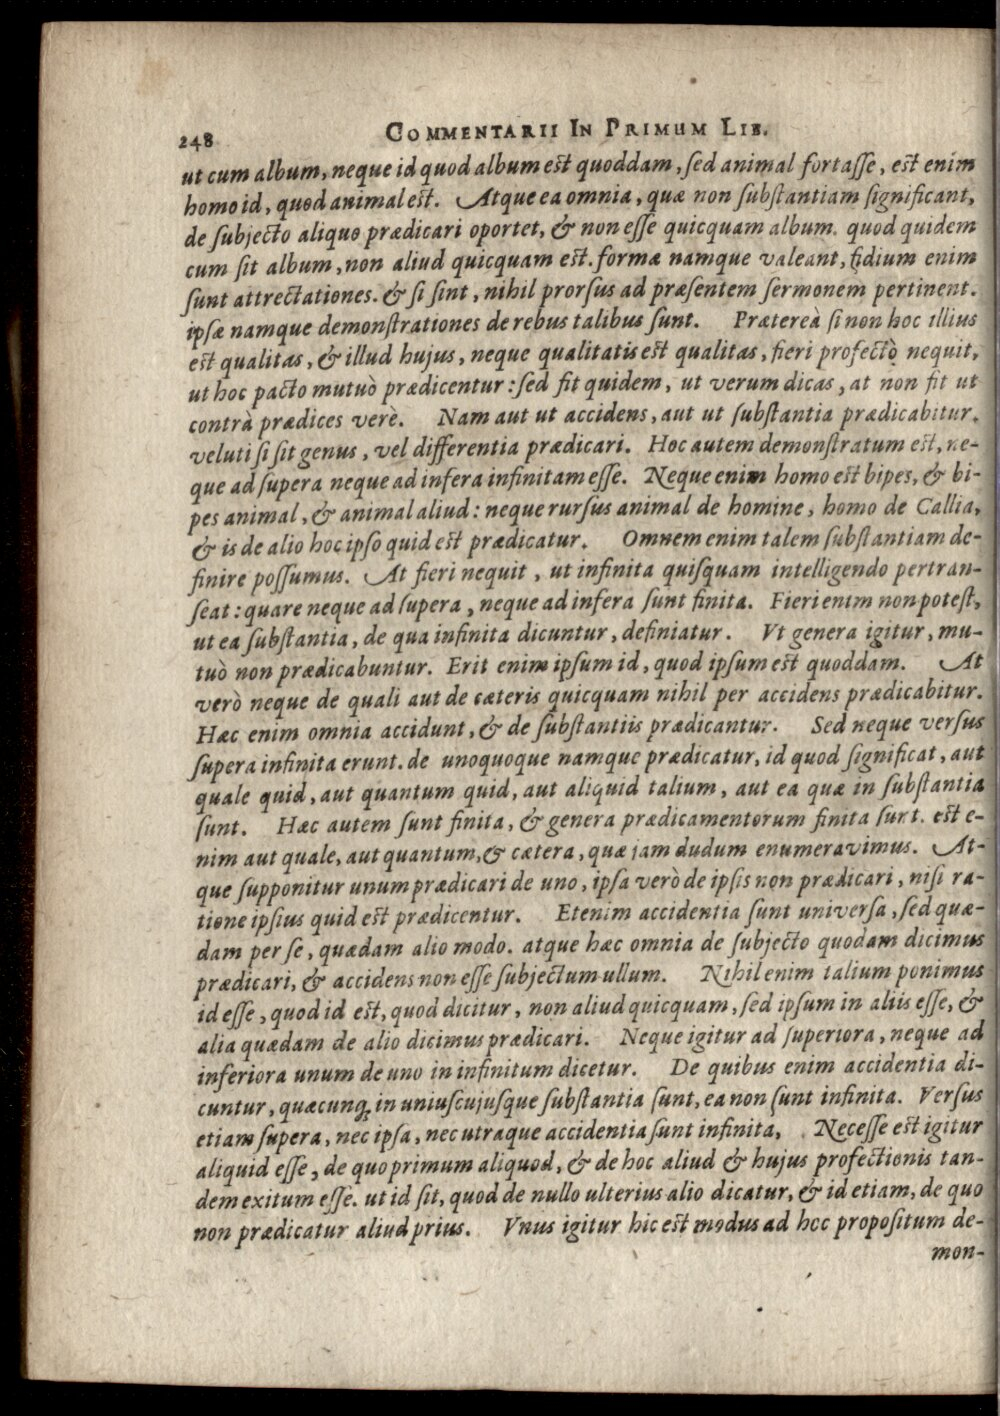 248 COMMENTARII IN PRIMUM LIB.
ut cum album, neque id quod album est quoddam, ſed animal fortaſſe, est enim
homo id, quod animal est. Atque ea omnia, quæ non ſubſtantiam ſignificant,
de ſubjecto aliquo prædicari oportet, & non eſſe quicquam album. quod quidem
cum ſit album, non aliud quicquam est. formæ namque valeant, fidium enim
ſunt attrectationes. & ſi ſint, nihil prorſus ad præſentem ſermonem pertinent.
ipſæ namque demonſtrationes de rebus talibus ſunt. Prætereà ſi non hoc illius
est qualitas, & illud hujus, neque qualitatis est qualitas, fieri profectò nequit,
ut hoc pacto mutuò prædicentur: ſed fit quidem, ut verum dicas, at non fit ut
contrà prædices verè. Nam aut ut accidens, aut ut ſubſtantia prædicabitur.
veluti ſi ſit genus, vel differentia prædicari. Hoc autem demonſtratum est, ne-
que ad ſupera neque ad infera infinitam eſſe. Neque enim homo est bipes, & bi-
pes animal, & animal aliud: neque rurſus animal de homine, homo de Callia,
& is de alio hoc ipſo quid est prædicatur. Omnem enim talem ſubſtantiam de-
finire poſſumus. At fieri nequit, ut infinita quiſquam intelligendo pertran-
ſeat: quare neque ad ſupera, neque ad infera ſunt finita. Fieri enim non poteſt,
ut ea ſubſtantia, de qua infinita dicuntur, definiatur. Vt genera igitur, mu-
tuò non prædicabuntur. Erit enim ipſum id, quod ipſum est quoddam. At
verò neque de quali aut de cæteris quicquam nihil per accidens prædicabitur.
Hæc enim omnia accidunt, & de ſubſtantiis prædicantur. Sed neque verſus
ſupera infinita erunt. de unoquoque namque prædicatur, id quod ſignificat, aut
quale quid, aut quantum quid, aut aliquid talium, aut ea quæ in ſubſtantia
ſunt. Hæc autem ſunt finita, & genera prædicamentorum finita ſunt. est e-
nim aut quale, aut quantum, & cætera, quæ jam dudum enumeravimus. At-
que ſupponitur unum prædicari de uno, ipſa verò de ipſis non prædicari, niſi ra-
tione ipſius quid est prædicentur. Etenim accidentia ſunt univerſa, ſed quæ-
dam per ſe, quædam alio modo. atque hæc omnia de ſubjecto quodam dicimus
prædicari, & accidens non eſſe ſubjectum ullum. Nihil enim talium ponimus
id eſſe, quod id est, quod dicitur, non aliud quicquam, ſed ipſum in aliis eſſe, &
alia quædam de alio dicimus prædicari. Neque igitur ad ſuperiora, neque ad
inferiora unum de uno in infinitum dicetur. De quibus enim accidentia di-
cuntur, quæcunq; in uniuſcujuſque ſubſtantia ſunt, ea non ſunt infinita. Verſus
etiam ſupera, nec ipſa, nec utraque accidentia ſunt infinita, Neceſſe est igitur
aliquid eſſe, de quo primum aliquod, & de hoc aliud & hujus profectionis tan-
dem exitum eſſe. ut id ſit, quod de nullo ulterius alio dicatur, & id etiam, de quo
non prædicatur aliud prius. Vnus igitur hic est modus ad hoc propoſitum de-
mon-